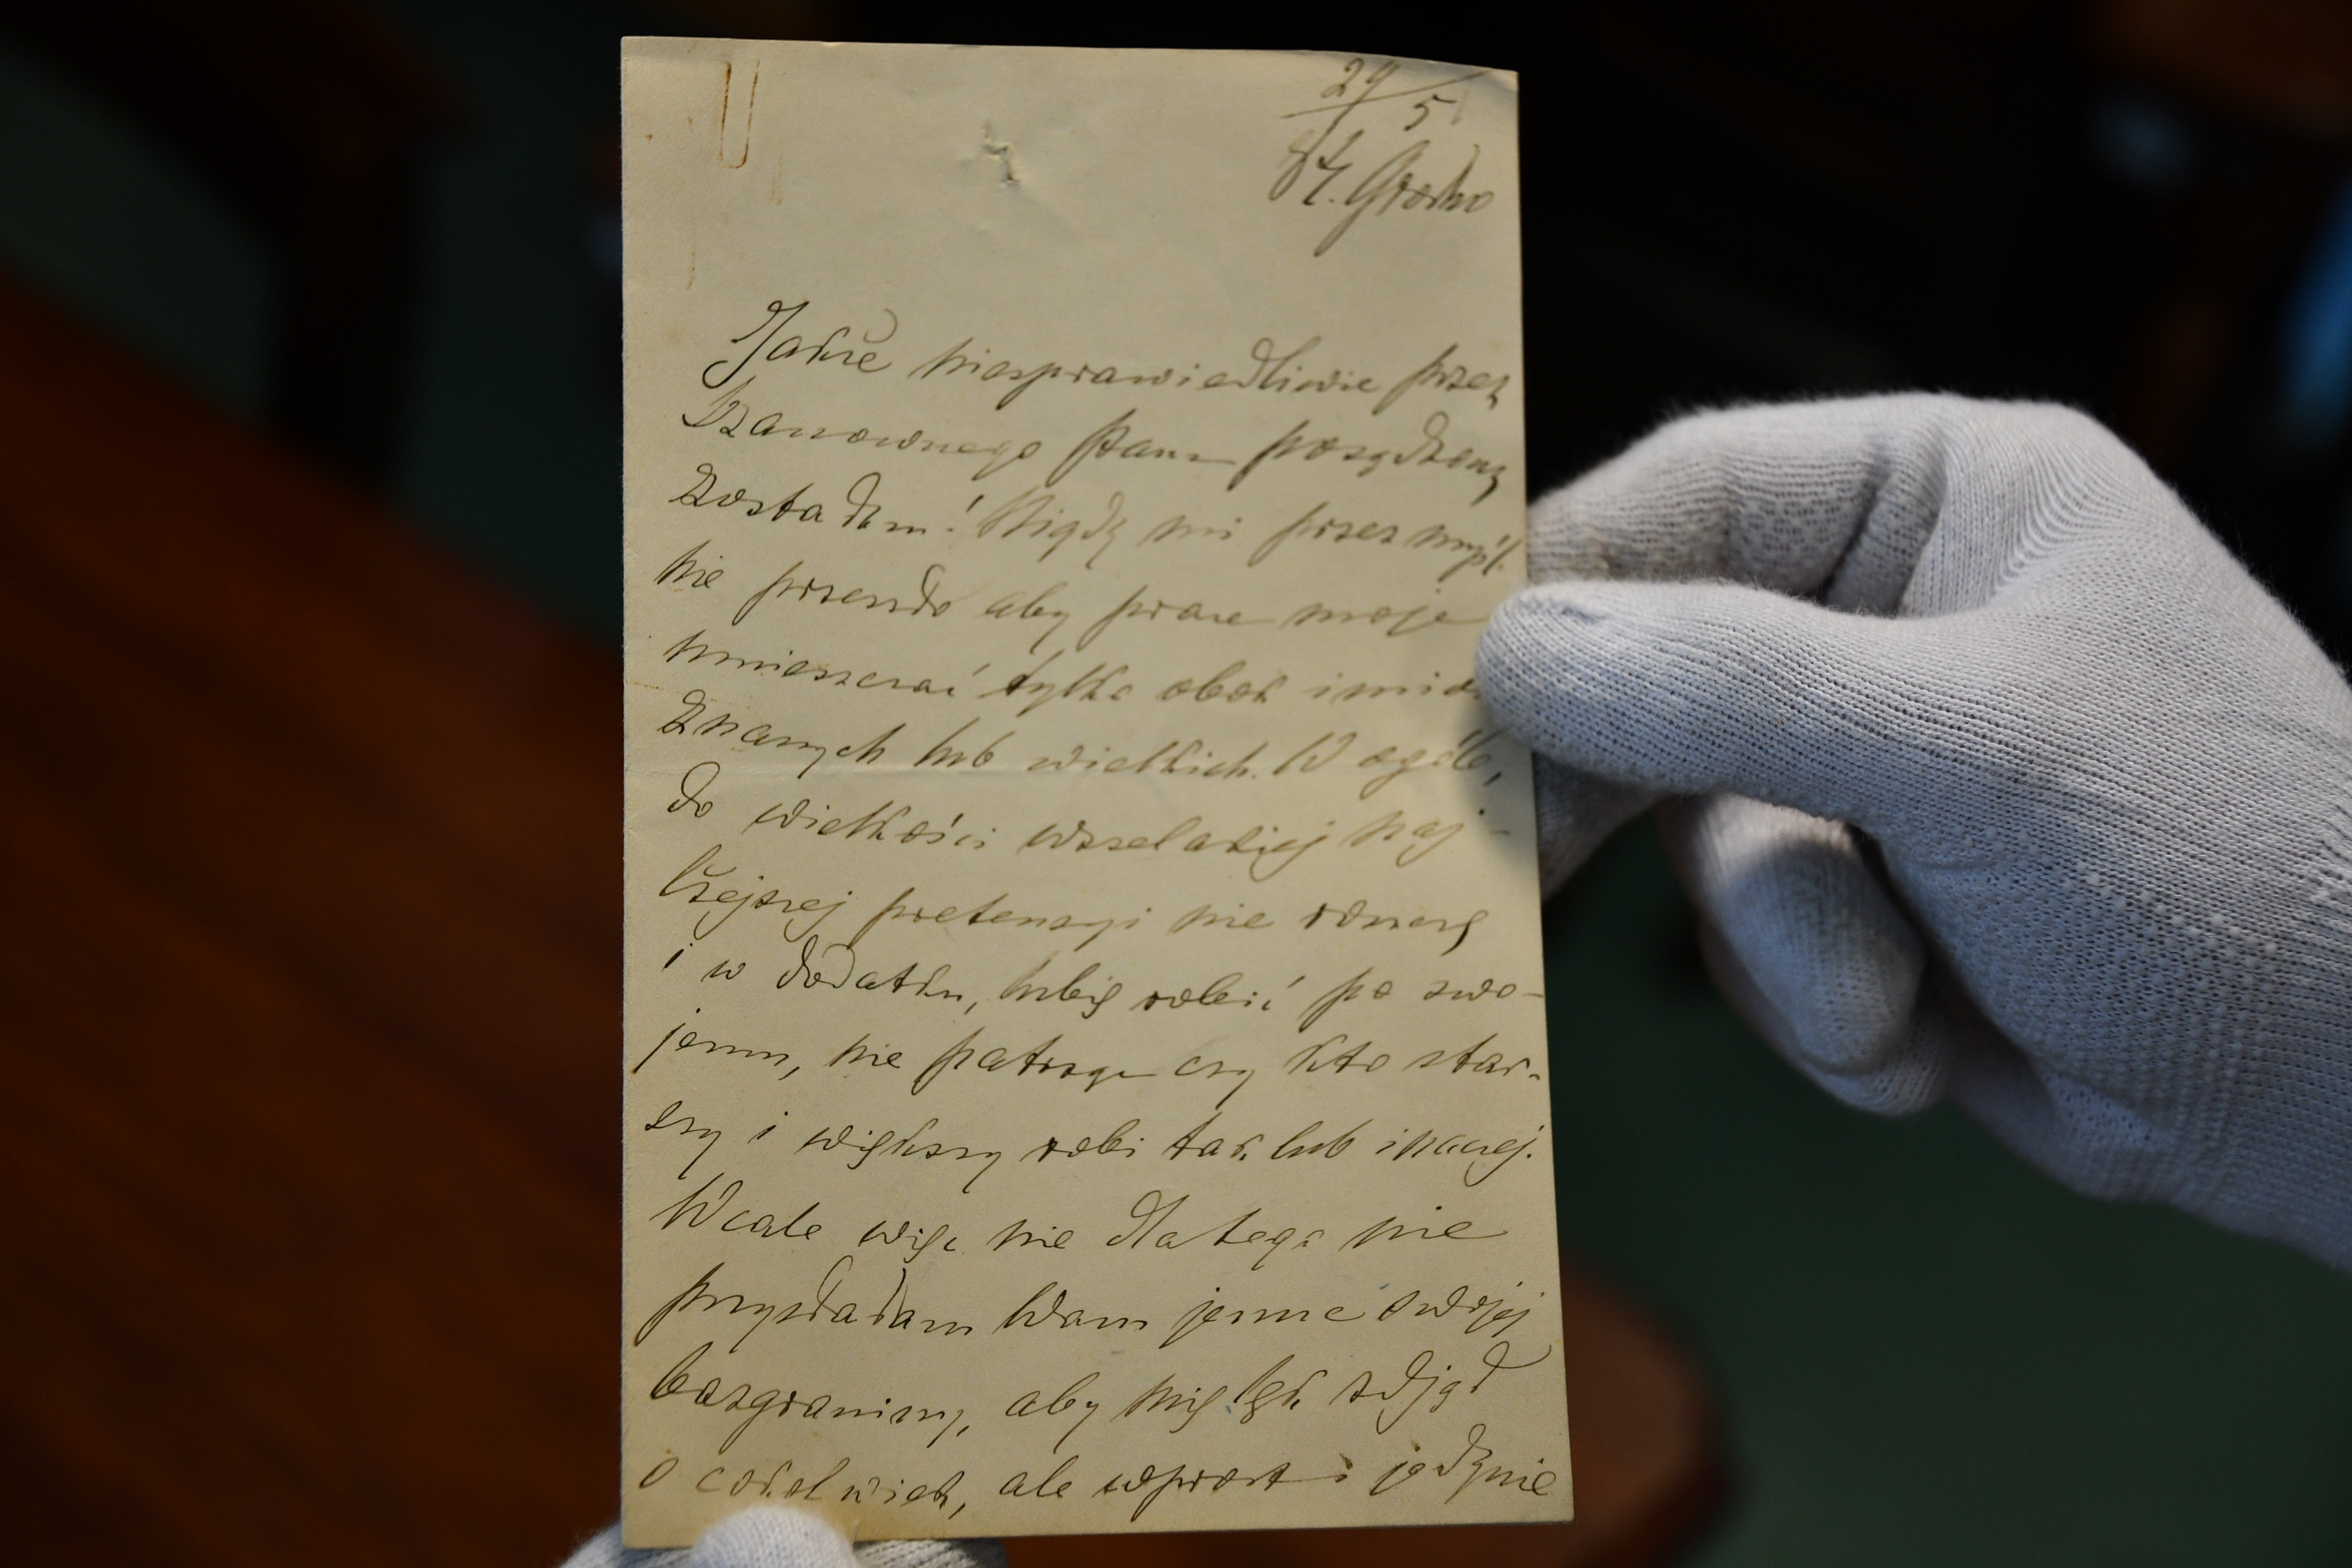 29/5
84. Grodno
Jakże niesprawiedliwie przez
Szanownego Pana posądzoną
zostałam! Nigdy mi przez myśl
nie przeszło aby prace moje
umieszczać tylko obok imion
znanych lub wielkich. W ogóle,
do wielkości wszelakiej naj-
lżejszej pretensyi nie roszczę
i w dodatku, lubię robić po swo-
jemu, nie patrząc czy kto star-
szy i większy robi tak lub inaczej.
Wcale więc nie dlatego nie
przysłałam Wam jeszcze swojej
bazgraniny, aby mię lęk zdjął
o cokolwiek, ale wprost i jedynie